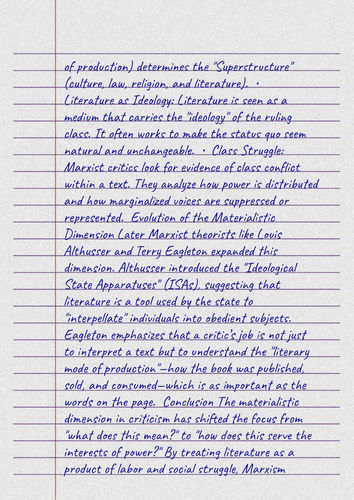 of production) determines the "Superstructure"
(culture, law, religion, and literature).  •
Literature as Ideology: Literature is seen as a
medium that carries the "ideology" of the ruling
class. It often works to make the status quo seem
natural and unchangeable.  •  Class Struggle:
Marxist critics look for evidence of class conflict
within a text. They analyze how power is distributed
and how marginalized voices are suppressed or
represented.  Evolution of the Materialistic
Dimension Later Marxist theorists like Louis
Althusser and Terry Eagleton expanded this
dimension. Althusser introduced the "Ideological
State Apparatuses" (ISAs), suggesting that
literature is a tool used by the state to
"interpellate" individuals into obedient subjects.
Eagleton emphasizes that a critic's job is not just
to interpret a text but to understand the "literary
mode of production"—how the book was published,
sold, and consumed—which is as important as the
words on the page.  Conclusion The materialistic
dimension in criticism has shifted the focus from
"what does this mean?" to "how does this serve the
interests of power?" By treating literature as a
product of labor and social struggle, Marxism